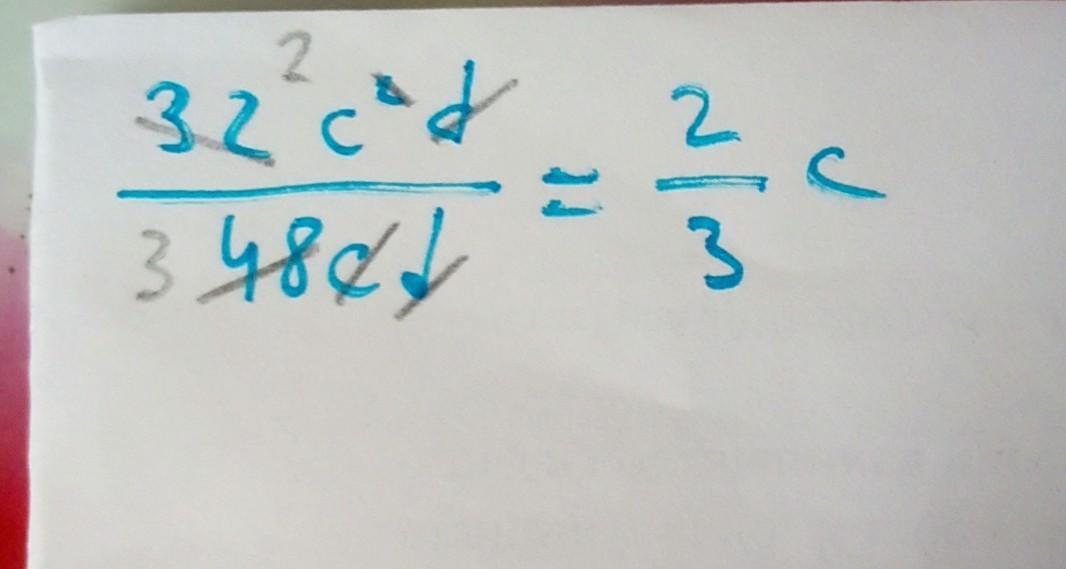 2
32 c² d
3 48 c d
= 2/3 c